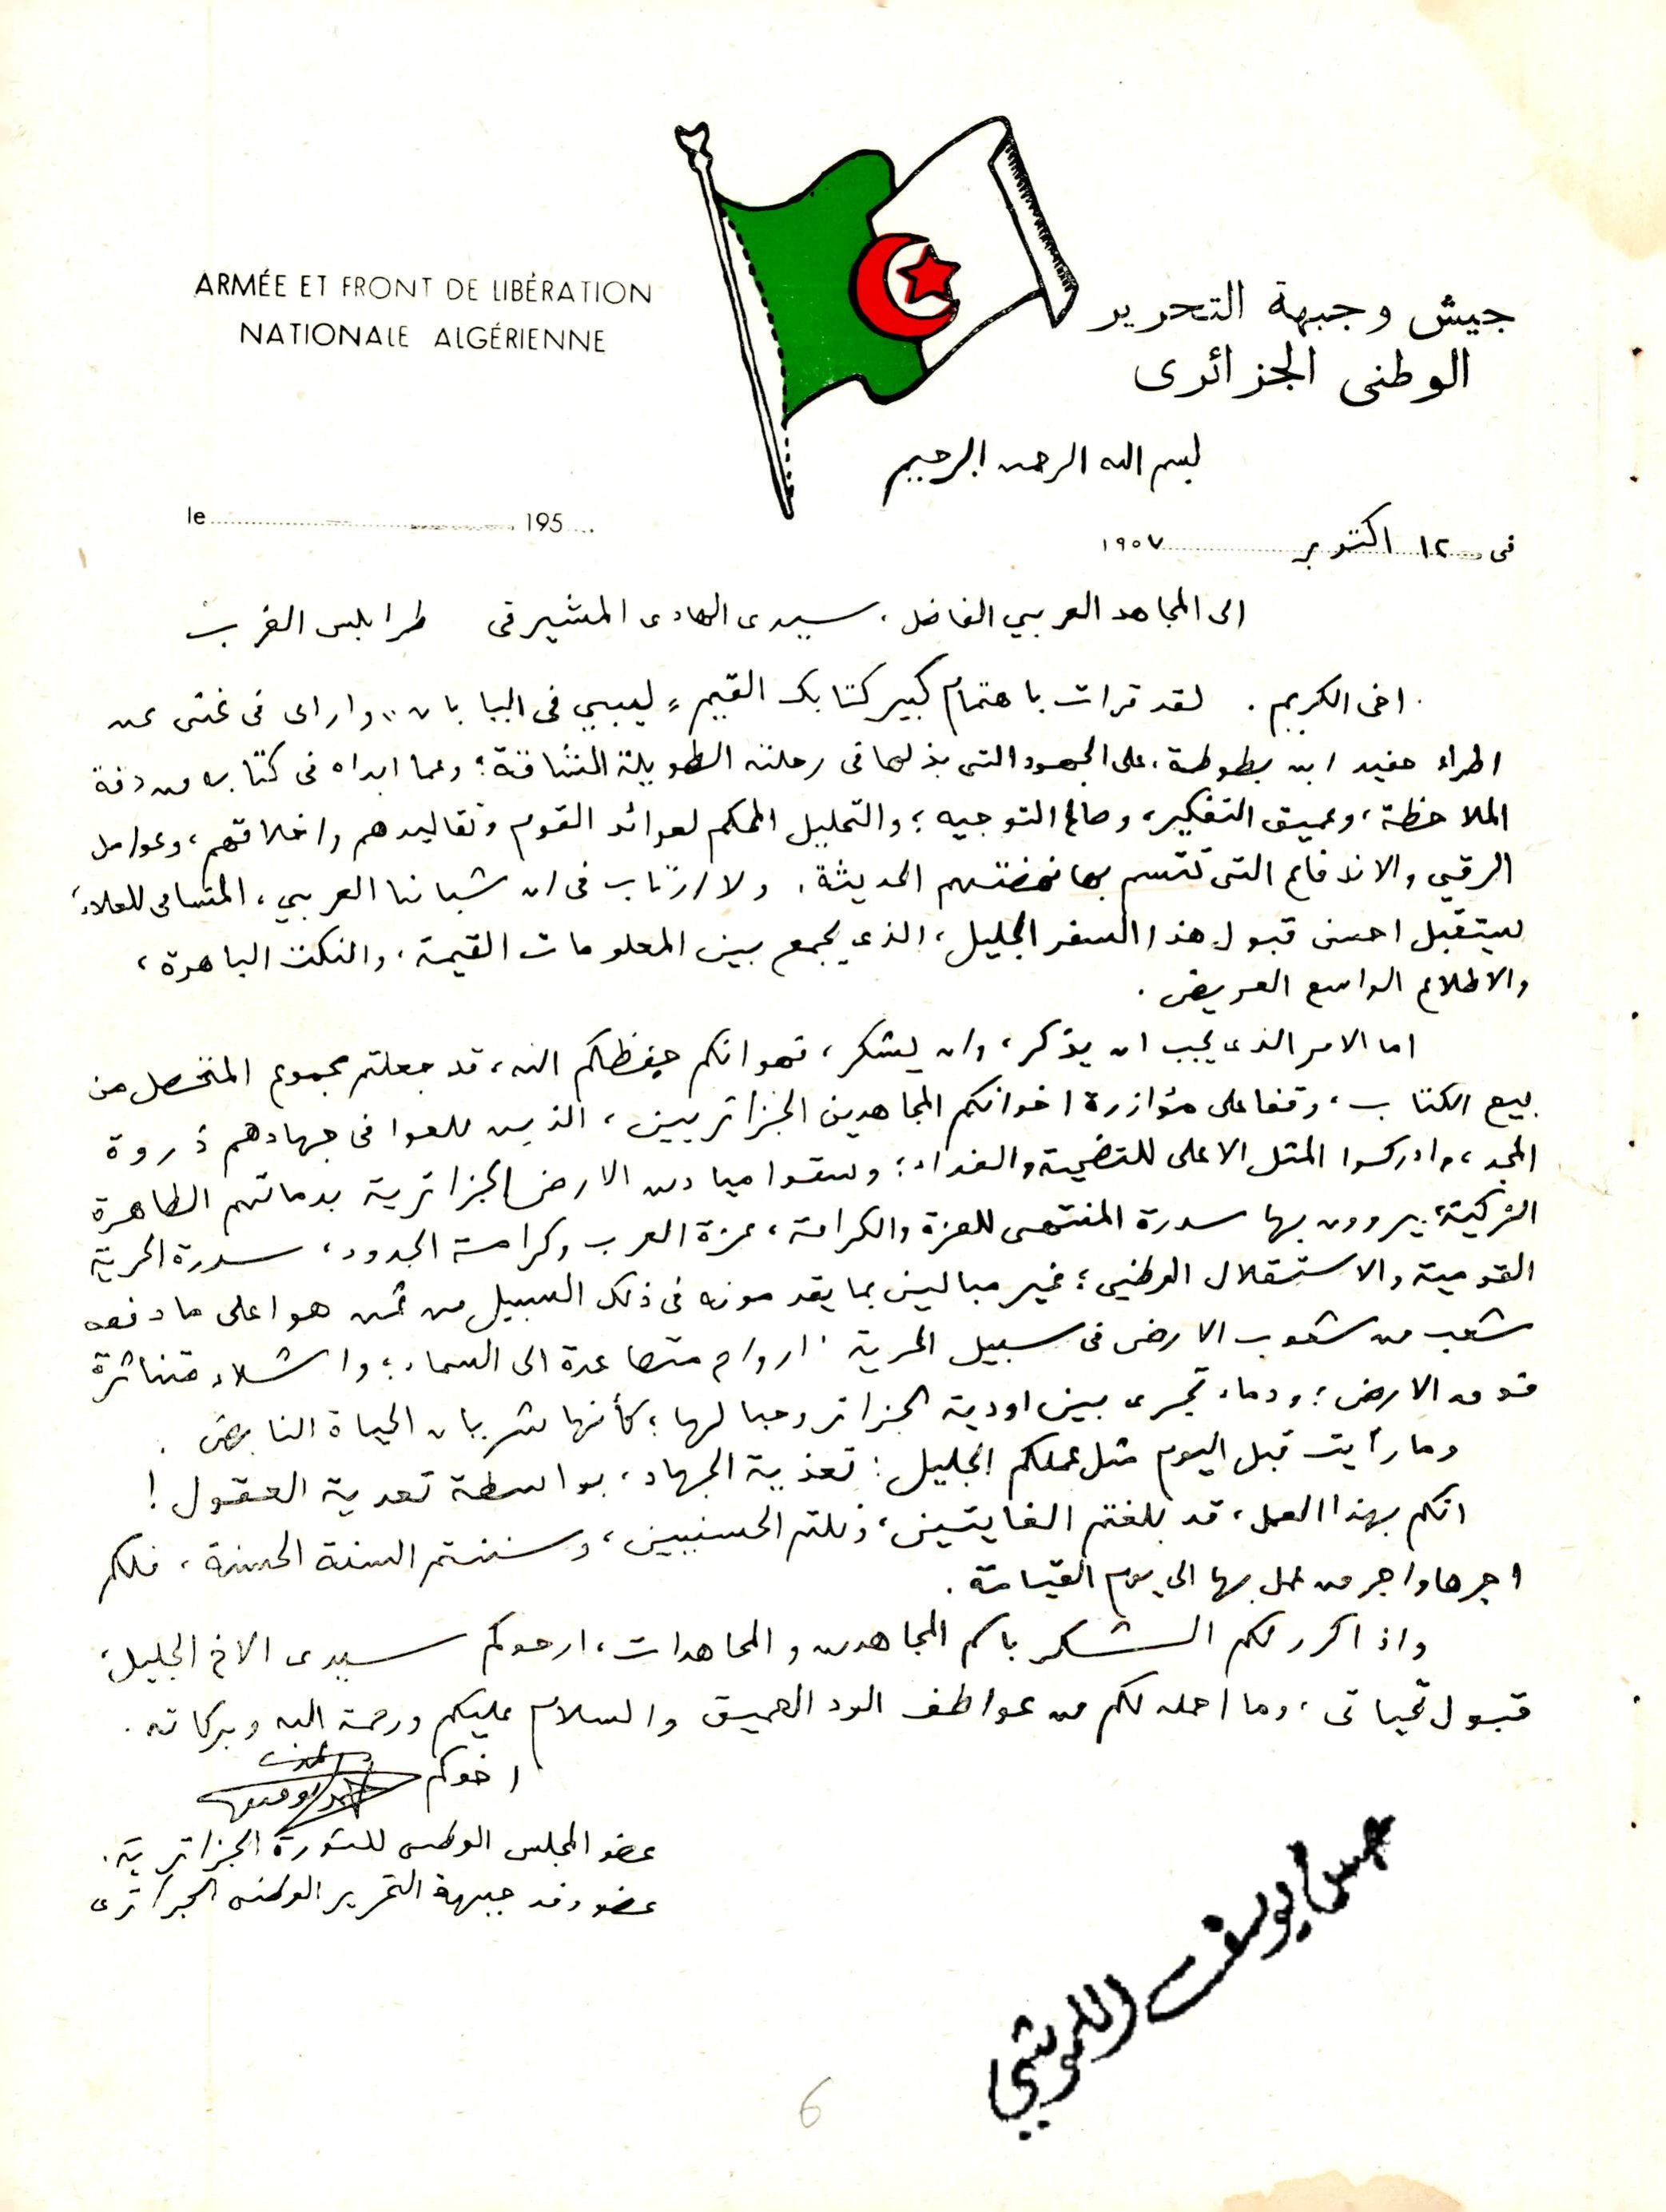 ARMÉE ET FRONT DE LIBÉRATION
NATIONALE ALGÉRIENNE
جيش وجبهة التحرير
الوطنى الجزائرى
بسم الله الرحمن الرحيم
le 195
فى ١٢ اكتوبر ١٩٥٧
الى المجاهد العربي الفاضل، سيدى الهادى المشيرقى طرابلس الغرب
اخى الكريم. لقد قرات باهتمام كبير كتابك القيم "ليبي فى اليابان" وارانى فى غنى عن
اطراء حفيد ابن بطوطة، على الجهود التى بذلها فى رحلته الطويلة الشاقة؛ وعما ابداه فى كتابه من دقة
الملاحظة، وعميق التفكير، وصالح التوجيه؛ والتحليل المحكم لعوائد القوم وتقاليدهم واخلاقهم، وعوامل
الرقي والاندفاع التى تتسم بها نهضتهم الحديثة. ولا ارتاب فى ان شبابنا العربي، المتسامى للعلاء،
سيتقبل احسن قبول هذا السفر الجليل، الذى يجمع بين المعلومات القيمة، والنكت الباهرة،
والاطلاع الواسع العريض.
اما الامر الذى يجب ان يذكر، وان يشكر، فهو انكم حفظكم الله، قد جعلتم مجموع المتحصل من
بيع الكتاب، وقفا على مؤازرة اخوانكم المجاهدين الجزائريين، الذين بلغوا فى جهادهم ذروة
المجد، وادركوا المثل الاعلى للتضحية والفداء؛ وسقوا ميادين الارض الجزائرية بدمائهم الطاهرة
الزكية؛ يروون بها سدرة المنتهى للعزة والكرامة، عزة العرب وكرامة الجدود، سدرة الحرية
القومية والاستقلال الوطني؛ غير مبالين بما يقدمونه فى ذلك السبيل من ثمن هو اعلى ما دفعه
شعب من شعوب الارض فى سبيل الحرية: ارواح متصاعدة الى السماء؛ واشلاء متناثرة
فوق الارض؛ ودماء تجرى بين اودية الجزائر وجبالها؛ كأنها شريان الحياة النابض.
وما رأيت قبل اليوم مثل عملكم الجليل: تغذية الجهاد، بواسطة تغذية العقول!
انكم بهذا العمل، قد بلغتم الغايتين، ونلتم الحسنيين، وسننتم السنة الحسنة، فلكم
اجرها واجر من عمل بها الى يوم القيامة.
واذ اكرر لكم الشكر باسم المجاهدين والمجاهدات، ارجوكم سيدى الاخ الجليل،
قبول تحياتى، وما احمله لكم من عواطف الود العميق والسلام عليكم ورحمة الله وبركاته.
اخوكم
عضو المجلس الوطنى للثورة الجزائرية.
عضو وفد جبهة التحرير الوطنى الجزائرى
حسن يوسف اللموشي
6